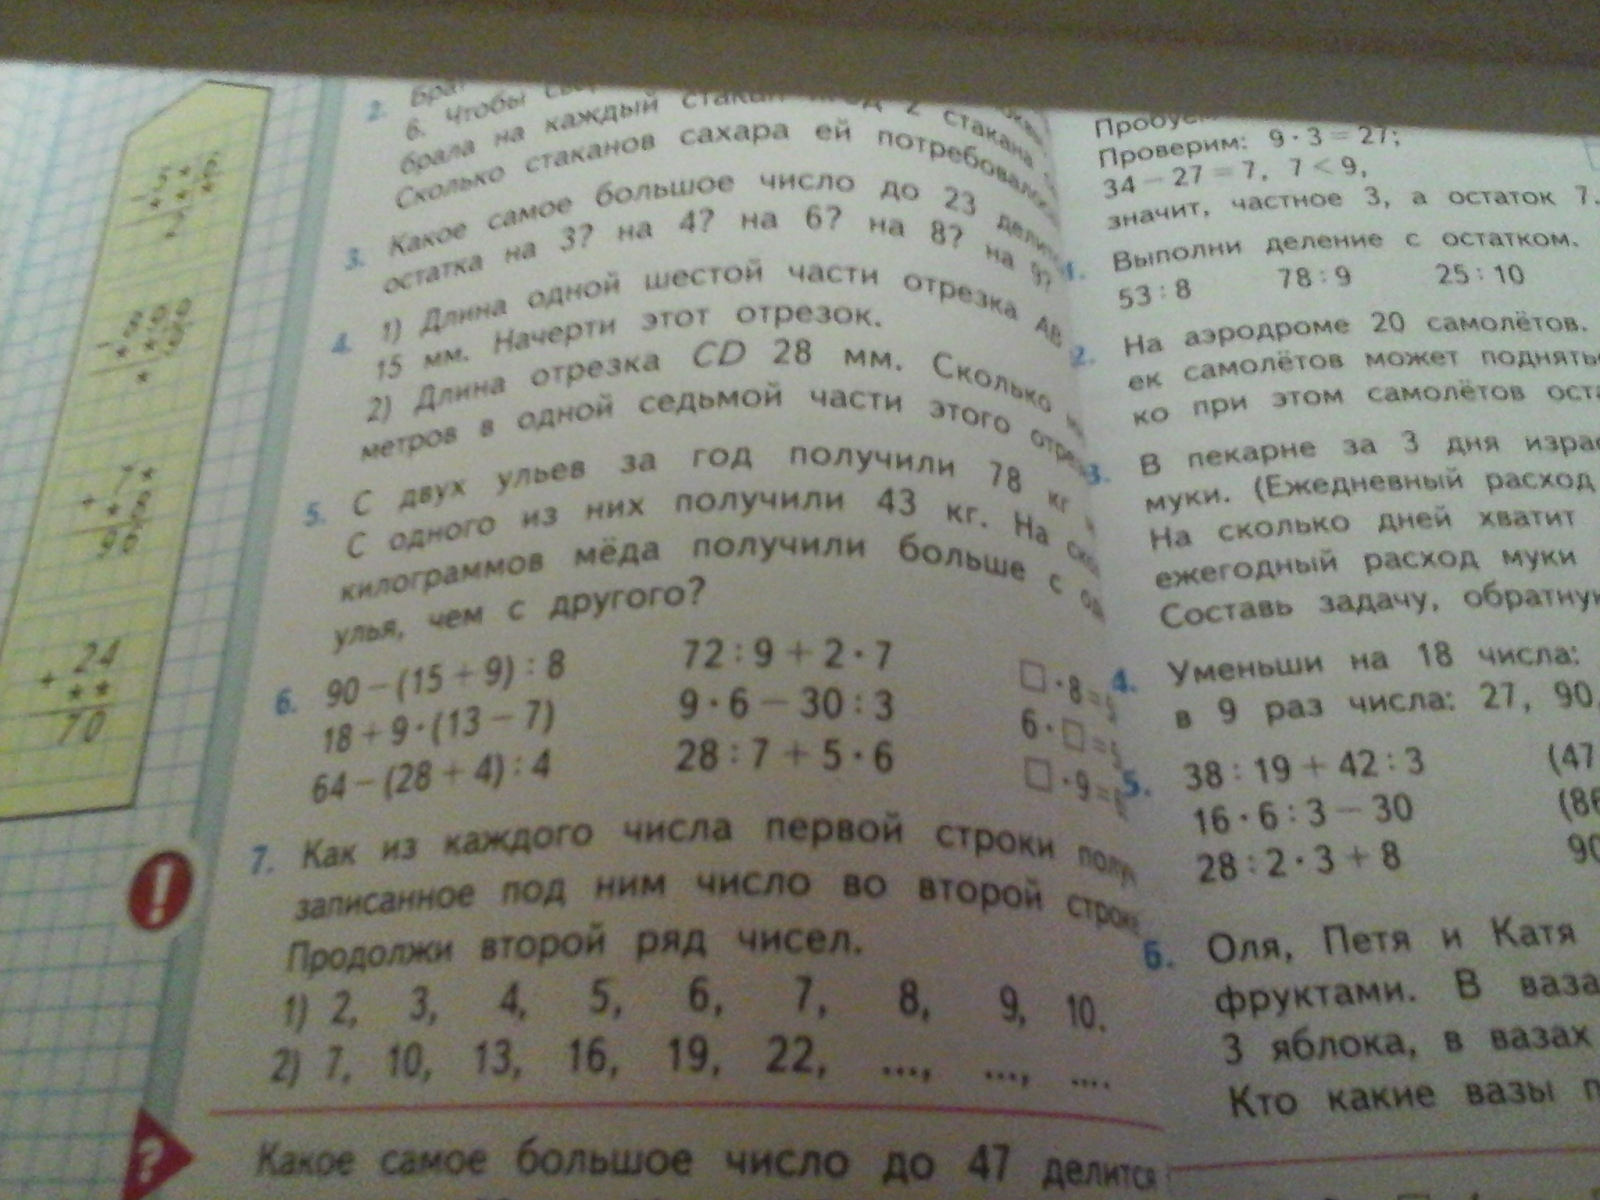 + 24
**
70
2.
6. Чтобы
брала на каждый стакан 2 стакана
Сколько стаканов сахара ей
3. Какое самое большое число до 23
остатка на 3? на 4? на 6? на 8? на 9?
4. 1) Длина одной шестой части отрезка AB
15 мм. Начерти этот отрезок.
2) Длина отрезка CD 28 мм. Сколько
метров в одной седьмой части этого
5. С двух ульев за год получили 78 кг
С одного из них получили 43 кг. На
килограммов мёда получили больше с
улья, чем с другого?
6. 90 − (15 + 9) : 8 72 : 9 + 2 · 7 □ · 8 =
18 + 9 · (13 − 7) 9 · 6 − 30 : 3 6 · □ =
64 − (28 + 4) : 4 28 : 7 + 5 · 6 □ · 9 =
!
7. Как из каждого числа первой строки
записанное под ним число во второй
Продолжи второй ряд чисел.
1) 2, 3, 4, 5, 6, 7, 8, 9, 10.
2) 7, 10, 13, 16, 19, 22, ..., ..., ....
?
Какое самое большое число до 47 делится
Проверим: 9 · 3 = 27;
34 − 27 = 7, 7 < 9,
значит, частное 3, а остаток 7.
1. Выполни деление с остатком.
53 : 8 78 : 9 25 : 10
2. На аэродроме 20 самолётов.
ек самолётов может
ко при этом самолётов
3. В пекарне за 3 дня
муки. (Ежедневный расход
На сколько дней хватит
ежегодный расход муки
Составь задачу,
4. Уменьши на 18 числа:
в 9 раз числа: 27, 90,
5. 38 : 19 + 42 : 3 (47
16 · 6 : 3 − 30 (86
28 : 2 · 3 + 8 90
6. Оля, Петя и Катя
фруктами. В
3 яблока, в вазах
Кто какие вазы